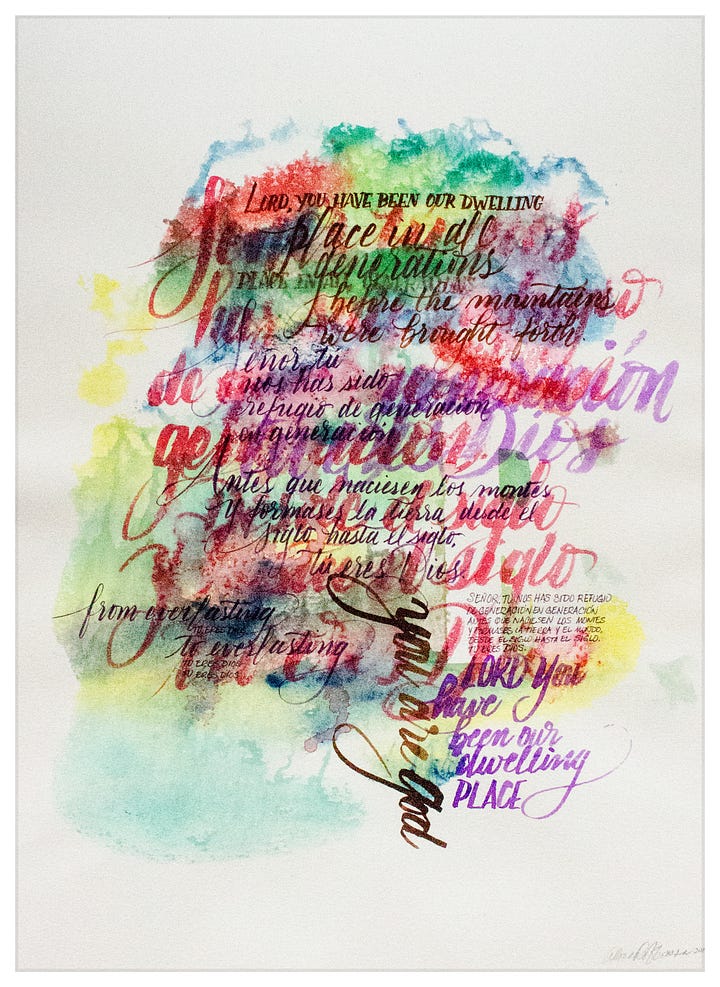 LORD, YOU HAVE BEEN OUR DWELLING
place in all
generations
PLACE IN ALL GENERATIONS
before the mountains
were brought forth.
Señor, tú
nos has sido
refugio de generación
en generación.
de generación
generación.
Dios
Antes que naciesen los montes
y formases la tierra desde el
siglo hasta el siglo,
tú eres Dios.
siglo
siglo
from everlasting
TU ERES DIOS
to everlasting
TU ERES DIOS
TU ERES DIOS
SEÑOR, TU NOS HAS SIDO REFUGIO
DE GENERACIÓN EN GENERACIÓN
ANTES QUE NACIESEN LOS MONTES
Y FORMASES LA TIERRA Y EL MUNDO,
DESDE EL SIGLO HASTA EL SIGLO,
TU ERES DIOS.
you are god
LORD You
have
been our
dwelling
PLACE